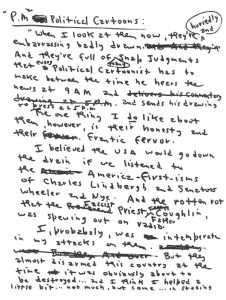 "P.M Political Cartoons:
"When I look at them now, they're hurriedly and
embarrassing badly drawn.
And they're full of Snap Judgments
that every Political Cartoonist has to
make between the time he hears the
news at 9 AM and
and sends his drawing
to press at 5 P.M.
The one thing I do like about
them, however, is their honesty and
their frantic fervor.
I believed the USA would go down
the drain if we listened to
the America-first-isms
of Charles Lindbergh and Senators
Wheeler and Nye. And the rotten rot
that the Fascist Priest Father Coughlin,
was spewing out on radio.
I, probably, was intemperate
in my attacks on them.
But they
almost disarmed this country at the
time it was obviously about to
be destroyed... and I think I helped a
little bit... not much, but some... in stating